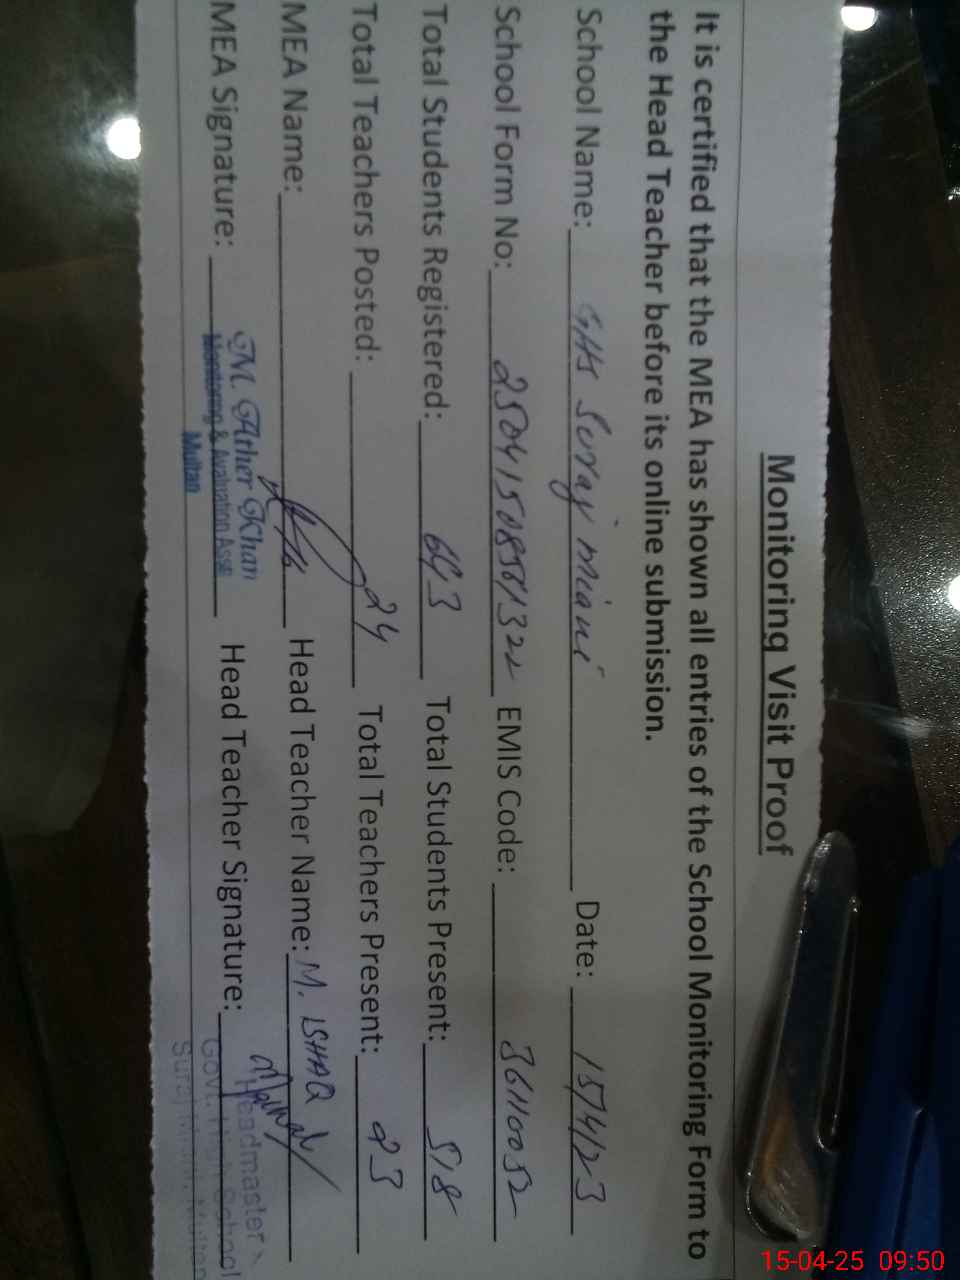 Monitoring Visit Proof
It is certified that the MEA has shown all entries of the School Monitoring Form to
the Head Teacher before its online submission.
School Name: GHS Suraj miani Date: 15/4/23
School Form No: EMIS Code: 36110052
Total Students Registered: 643 Total Students Present: 518
Total Teachers Posted: 24 Total Teachers Present: 23
MEA Name: Head Teacher Name: M. ISHAQ
MEA Signature: Head Teacher Signature:
M. Ather Khan
Monitoring & Evaluation Asst
Multan
Headmaster
Govt. High School
Suraj Miani, Multan
15-04-25 09:50